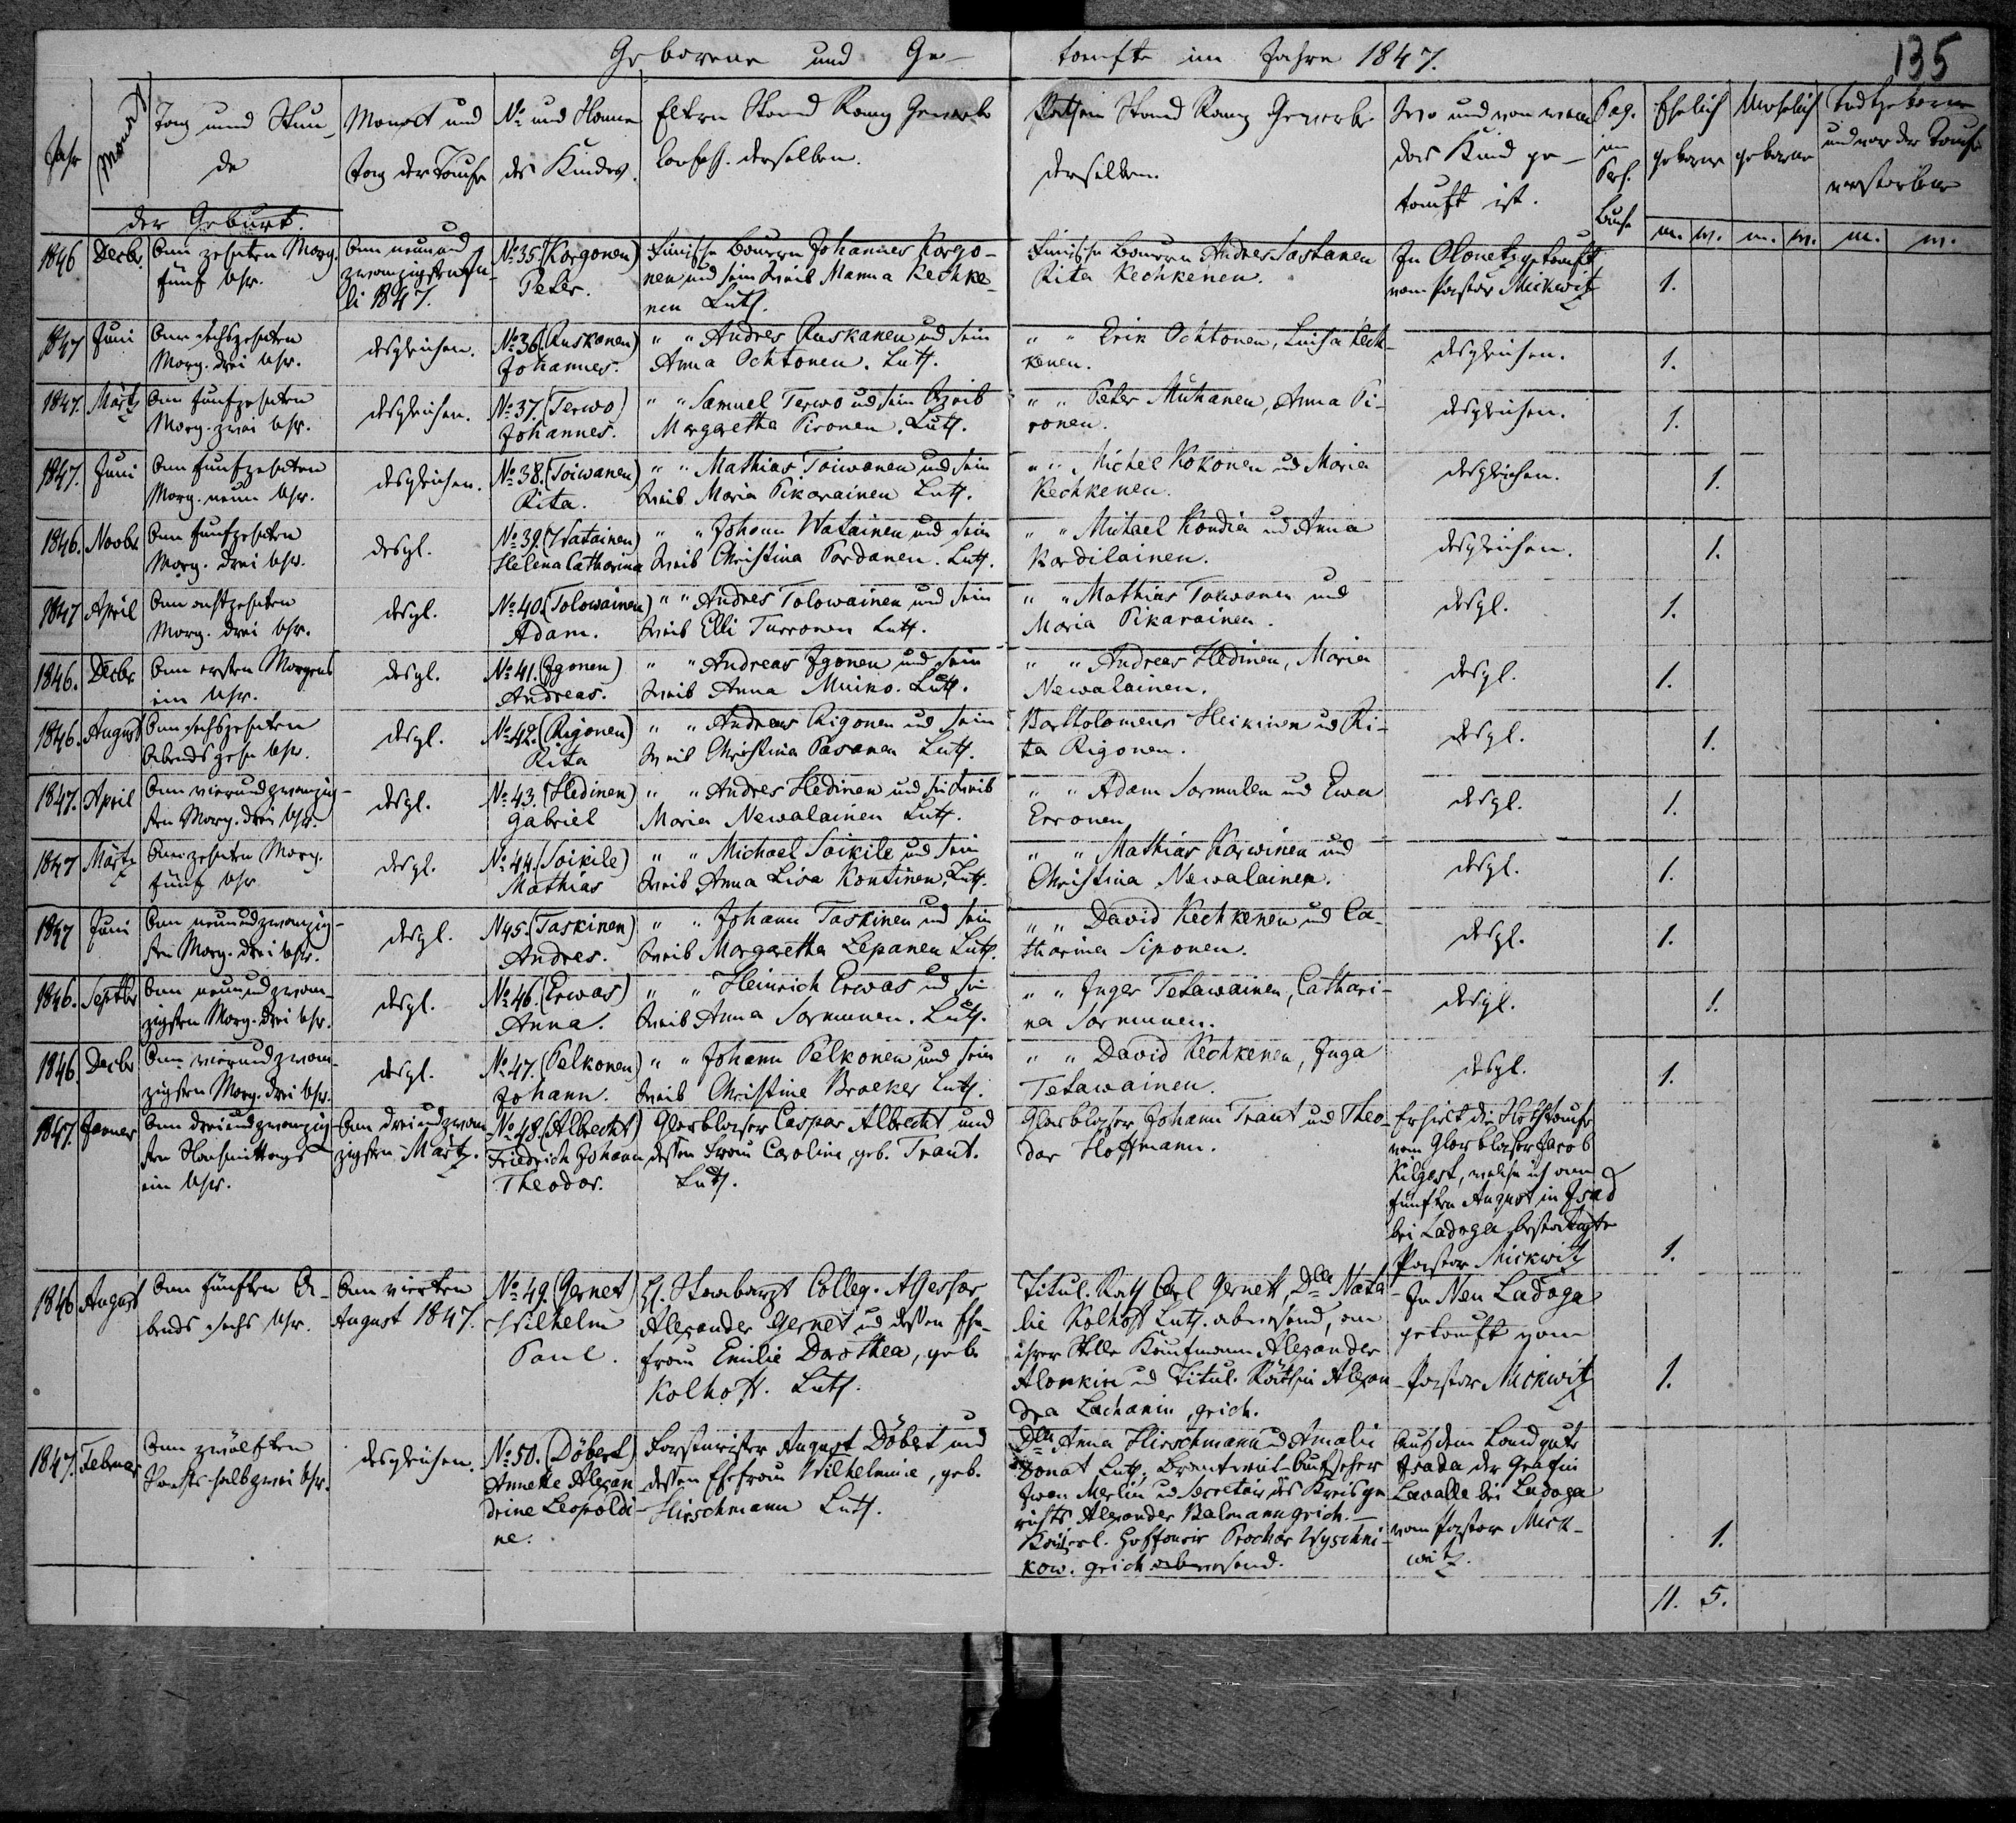 Geborene und Ge- taufte im Jahre 1847.
135
Jahr
Monat
Tag und Stun-
de
der Geburt.
Monat und
Tag der Taufe
No und Name
des Kindes.
Eltern Stand Rang Gewerbe
Confess. derselben.
Pathen Stand Rang Gewerbe
derselben.
Wo und von wem
das Kind ge-
tauft ist.
Pag.
im
Buche
Ehelich
geborne
Unehelich
geborne
Todtgeborne
und vor der Taufe
verstorbene
m. w. m. w. m. w.
1846 Decbr. Am zehnten Morg.
fünf Uhr.
Am neunund
zwanzigsten Ju-
li 1847.
No 35. (Korgonen)
Peter.
Finische Bauern Johannes Korgo-
nen und sein Weib Manna Kechke-
nen Luth.
Finische Bauern Andres Saskanen
Rita Kechkenen.
In Olonetz getauft
vom Pastor Mickwitz
1.
1847 Juni Am sechszehnten
Morg. drei Uhr.
desgleichen.
No 36. (Ruskanen)
Johannes.
" " Andres Ruskanen und sein
Anna Ochtonen. Luth.
" " Erik Ochtonen, Luisa Kech-
kenen.
desgleichen.
1.
1847. Märtz Am fünfzehnten
Morg. zwei Uhr.
desgleichen.
No 37. (Terwo)
Johannes.
" " Samuel Terwo und sein Weib
Margaretha Pironen. Luth.
" " Peter Muhanen, Anna Pi-
ronen.
desgleichen.
1.
1847. Juni Am fünfzehnten
Morg. neun Uhr.
desgleichen.
No 38. (Toiwanen)
Rita.
" " Mathias Toiwanen und sein
Weib Maria Pikarainen Luth.
" " Michel Kokonen und Maria
Kechkenen.
desgleichen.
1.
1846. Novbr Am fünfzehnten
Morg. drei Uhr.
desgl.
No 39. (Watainen)
Helena Catharina
" " Johann Watainen und sein
Weib Christina Pardanen. Luth.
" " Michael Kondia und Anna
Kardilainen.
desgleichen.
1.
1847 April Am achtzehnten
Morg. drei Uhr.
desgl.
No 40. (Tolowainen)
Adam.
" " Andres Tolowainen und sein
Weib Elli Turronen Luth.
" " Mathias Toiwanen und
Maria Pikarainen.
desgl.
1.
1846. Decbr Am ersten Morgens
ein Uhr.
desgl.
No 41. (Igonen)
Andreas.
" " Andreas Igonen und sein
Weib Anna Muiko. Luth.
" " Andreas Hedinen, Maria
Newalainen.
desgl.
1.
1846. August Am sechszehnten
Abends zehn Uhr.
desgl.
No 42. (Rigonen)
Rita
" " Andreas Rigonen und sein
Weib Christina Pasanen Luth.
Bartholomeus Heikinen und Ri-
ta Rigonen.
desgl.
1.
1847. April Am vierundzwanzig-
sten Morg. drei Uhr.
desgl.
No 43. (Hedinen)
Gabriel
" " Andres Hedinen und sein Weib
Maria Newalainen Luth.
" " Adam Sormulen und Ewa
Erronen
desgl.
1.
1847 Märtz Am zehnten Morg.
fünf Uhr
desgl.
No 44. (Soikile)
Mathias
" " Michael Soikile und sein
Weib Anna Lisa Kontinen, Luth.
" " Mathias Karwinen und
Christina Newalainen.
desgl.
1.
1847 Juni Am neunundzwanzig-
sten Morg. drei Uhr.
desgl.
N 45. (Taskinen)
Andres.
" " Johann Taskinen und sein
Weib Margaretha Lepanen Luth.
" " David Kechkenen und Ca-
tharina Siponen.
desgl.
1.
1846. Septbr Am neunundzwan-
zigsten Morg. drei Uhr.
desgl.
No 46. (Erwas)
Anna.
" " Heinrich Erwas und sein
Weib Anna Sormunen. Luth.
" " Inger Tetawainen, Cathari-
na Sormunen.
desgl.
1.
1846. Decbr Am vierundzwan-
zigsten Morg. drei Uhr.
desgl.
No 47. (Pelkonen)
Johann.
" " Johann Pelkonen und sein
Weib Christine Braeker Luth.
" " David Kechkenen, Inga
Tetawainen.
desgl.
1.
1847. Januar Am dreiundzwanzig-
sten Nachmittags
ein Uhr.
Am dreiundzwan-
zigsten Märtz.
No 48. (Albrecht)
Friedrich Johann
Theodor.
Glasblaser Caspar Albrecht und
dessen Frau Caroline, geb. Traut.
Luth.
Glasblaser Johann Traut und Theo-
dor Hoffmann.
Erhielt die Nothtaufe
vom Glasblaser Jacob
Kilgast, welche ich am
fünften August in Isad
bei Ladoga bestätigte
Pastor Mickwitz
1.
1846 August Am fünften A-
bends sechs Uhr.
Am vierten
August 1847.
No 49. (Gernet)
Wilhelm
Paul.
H. Stabarzt Colleg. Assessor
Alexander Gernet und dessen Ehe-
frau Emilie Dorothea, geb.
Kolhoff. Luth.
Titul. Rath Carl Gernett, Dlle Nata-
lie Kolhoff Luth. abwesend, an
ihrer Stelle Kaufmann Alexander
Alonkin und Titul. Räthin Alexan-
dra Lachanin, griech.
In Neu Ladoga
getauft vom
Pastor Mickwitz
1.
1847. Februar Am zwölften
Nachts halb zwei Uhr.
desgleichen.
No 50. (Döbert)
Annette Alexan
drine Leopoldi-
ne.
Forstmeister August Döbert und
dessen Ehefrau Wilhelmine, geb.
Hirschmann Luth.
Dlle Anna Hirschmann und Amalie
Donat Luth. Brantwein Aufseher
Iwan Merlin und Secretair des Kreisge
richts Alexander Balmann griech.
Kaiserl. Hoffourir Prochor Wyschni-
kow. griech abwesend.
Auf dem Landgute
Isada der Gräfin
Lavalle bei Ladoga
vom Pastor Mick-
witz.
1.
11. 5.